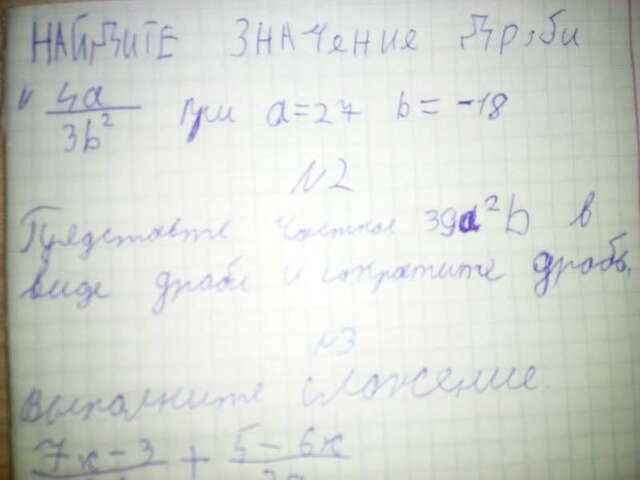 НАЙДИТЕ ЗНАЧЕНИЕ ДРОБИ
4a
3b²
при a=27 b=-18
N2
Представте частное 39a²b в
виде дроби и сократите дробь.
N3
Выполните сложение.
7x-3 + 5-6x